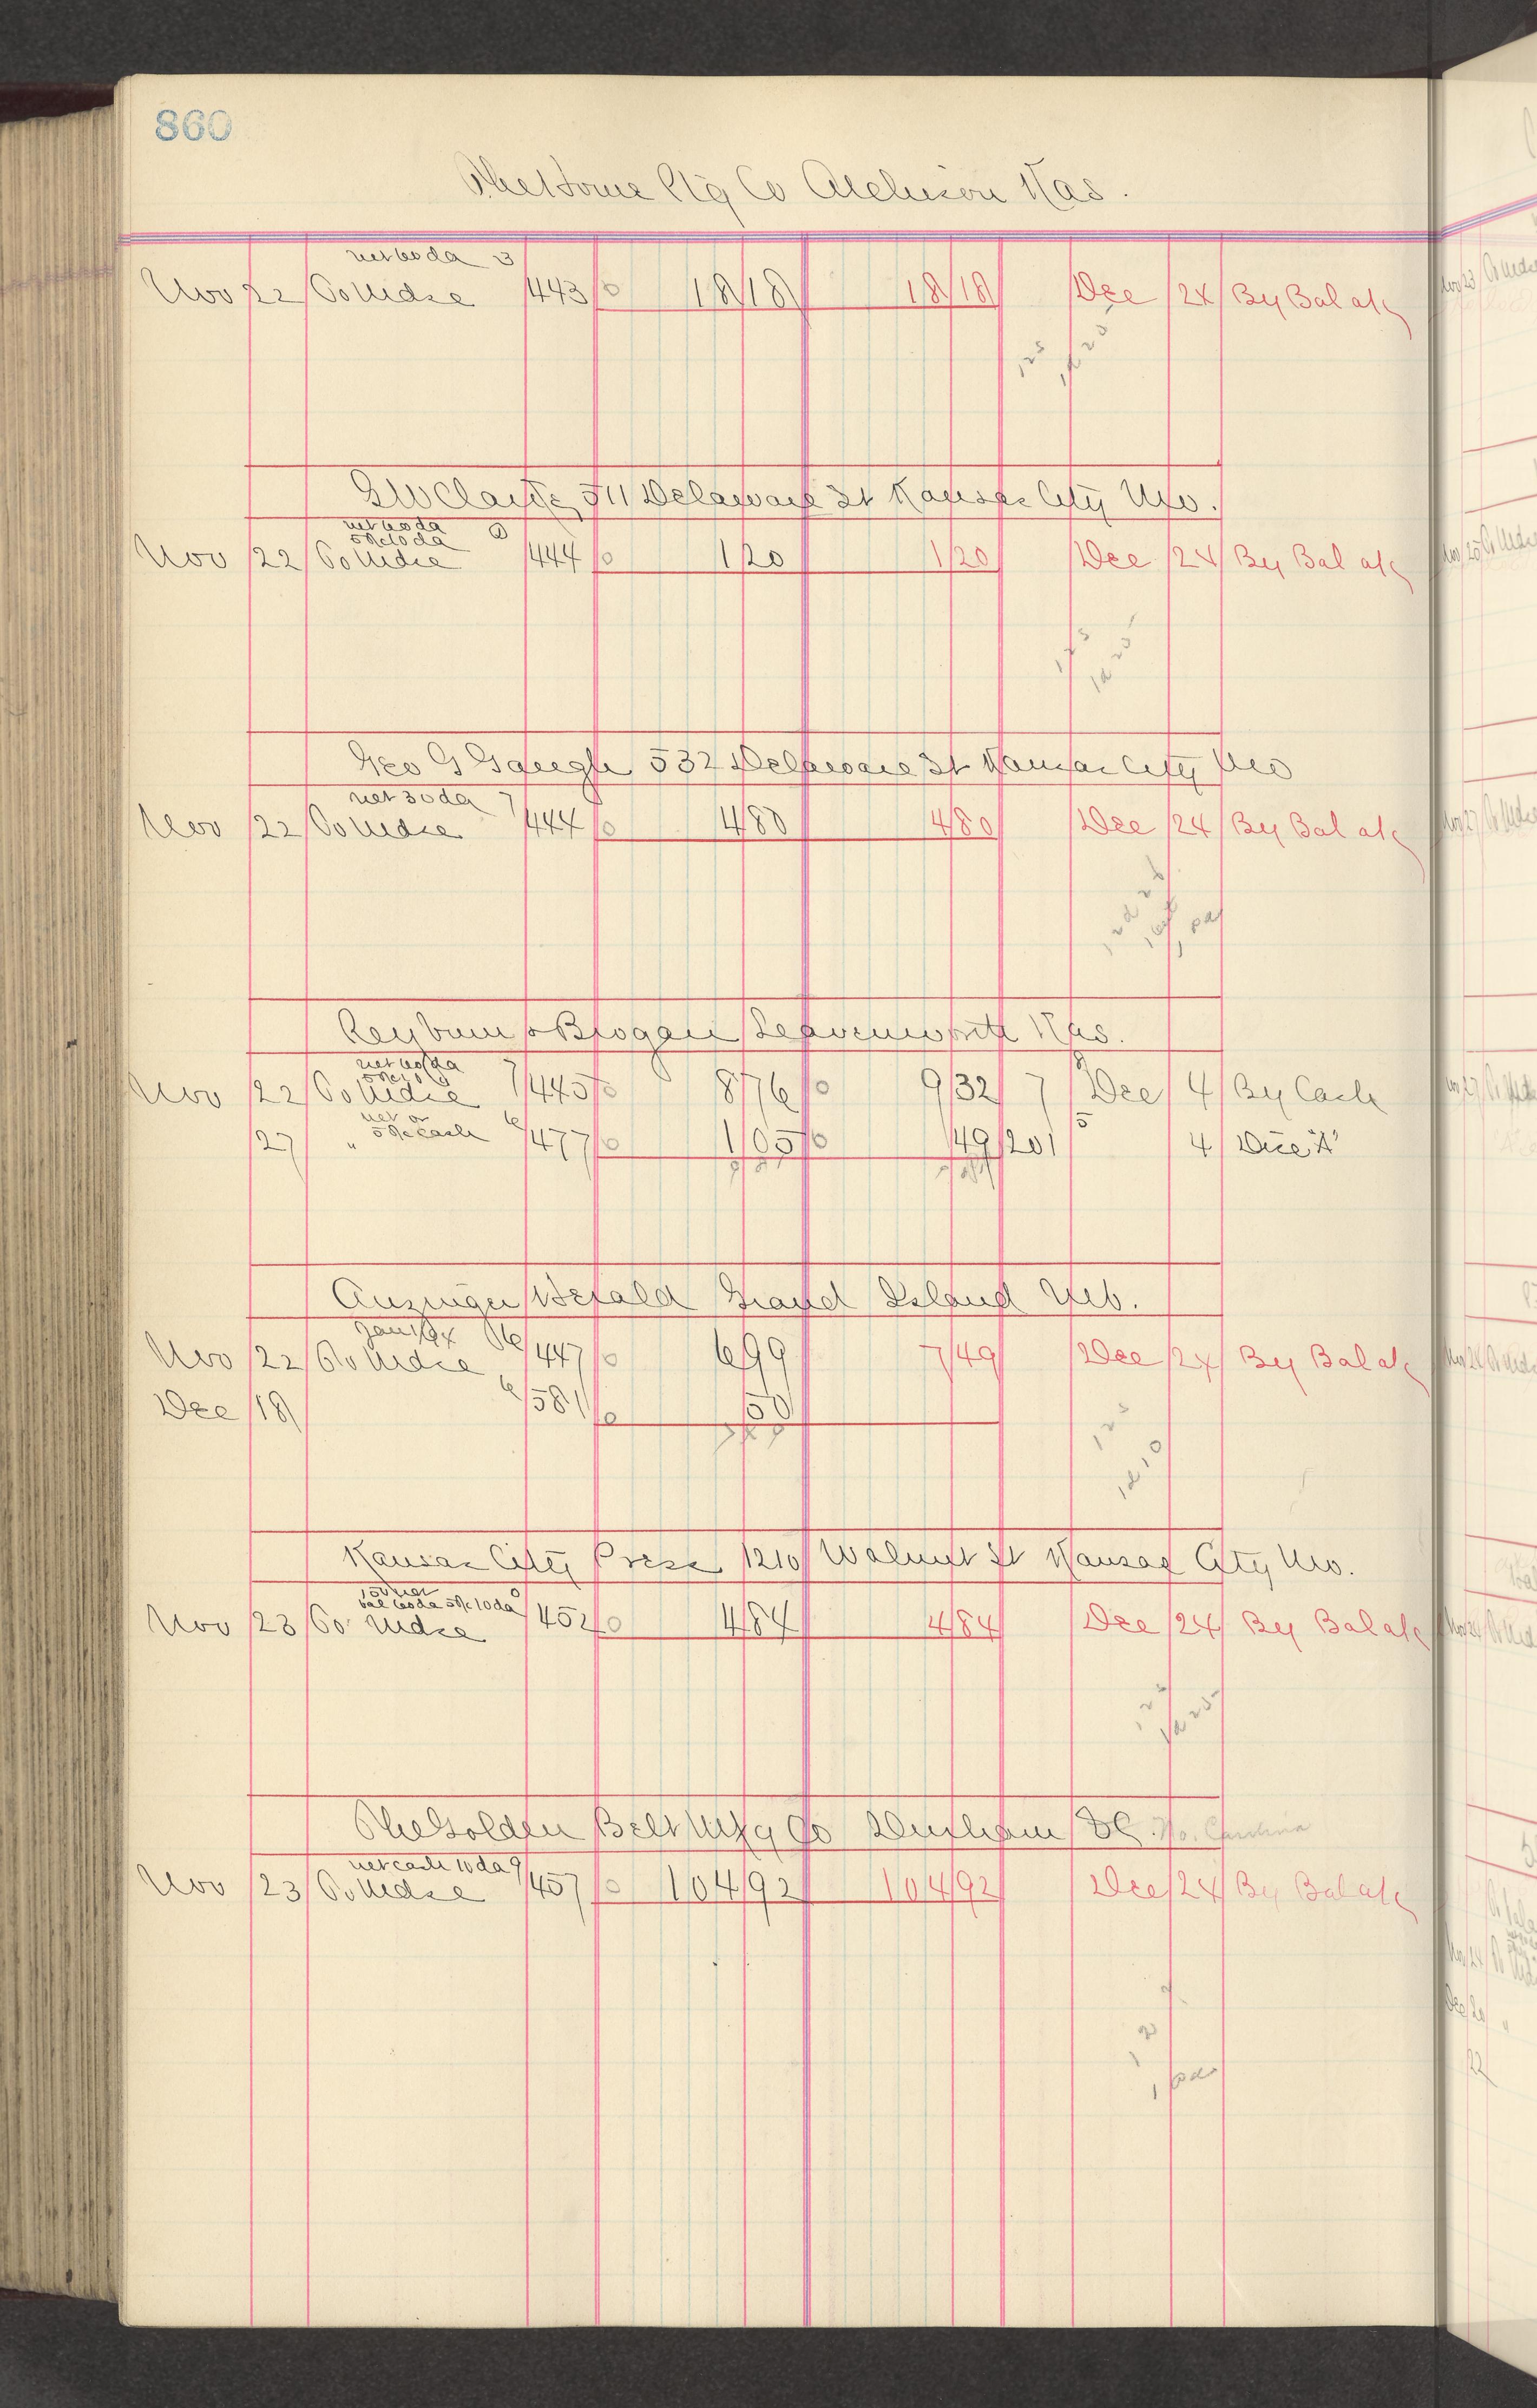 860
The Home Ptg Co Atchison Kas.
net 60 da 3
Nov 22 To Mdse 443 0 18 18 18 18 Dec 24 By Bal a/c
1 2 5
1d 25
G W Clarke 511 Delaware St Kansas City Mo.
net 60 da
5% 10 da
Nov 22 To Mdse 444 0 1 20 1 20 Dec 24 By Bal a/c
1 2 5
1d 25
Geo G Gaugh 532 Delaware St Kansas City Mo
net 30 da 7
Nov 22 To Mdse 444 0 4 80 4 80 Dec 24 By Bal a/c
Reyburn & Brogan Leavenworth Kas.
net 60 da 7
Nov 22 To Mdse 445 0 8 76 0 9 32 7 Dec 4 By Cash
net or
5% cash 6
27 " 477 0 1 05 0 49 201 5 4 Disc "A"
9 81
Anzinger Herald Grand Island Neb.
Jan 1/94 16
Nov 22 To Mdse 447 0 6 99 7 49 Dec 24 By Bal a/c
Dec 18 6 581 0 50
7 4 9
1 2 5
1d 10
Kansas City Press 1210 Walnut St Kansas City Mo.
150 net
bal 60 da 5% 10 da
Nov 23 To Mdse 452 0 4 84 4 84 Dec 24 By Bal a/c
1 2 5
1d 25
The Golden Belt Mfg Co Durham No. Carolina
net cash 10 da 9
Nov 23 To Mdse 457 0 104 92 104 92 Dec 24 By Bal a/c